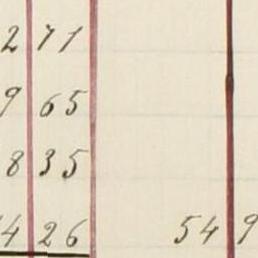 2 71
9 65
8 35
4 26 54 9